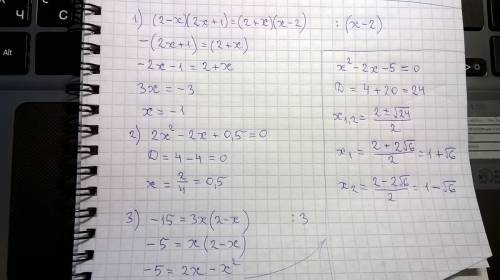 1) (2-x)(2x+1)=(2+x)(x-2) :(x-2)
-(2x+1)=(2+x)
-2x-1=2+x
3x=-3
x=-1
2) 2x²-2x+0,5=0
D=4-4=0
x=2/4=0,5
3) -15=3x(2-x) :3
-5=x(2-x)
-5=2x-x²
x²-2x-5=0
D=4+20=24
x₁,₂=(2±√24)/2
x₁=(2+2√6)/2=1+√6
x₂=(2-2√6)/2=1-√6
Ч
Alt